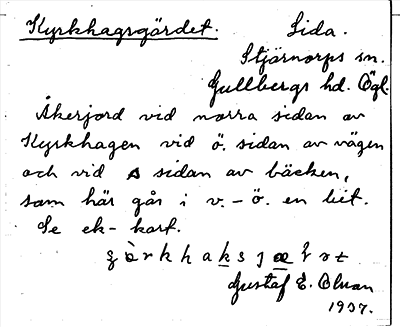 Kyrkhagsgärdet. Lida.
Stjärnorps sn.
Gullbergs hd. Ögl.
Åkerjord vid norra sidan av
Kyrkhagen vid ö. sidan av vägen
och vid s sidan av bäcken,
som här går i v. – ö. en bit.
Se ek-kart.
Gustaf E.
1937.